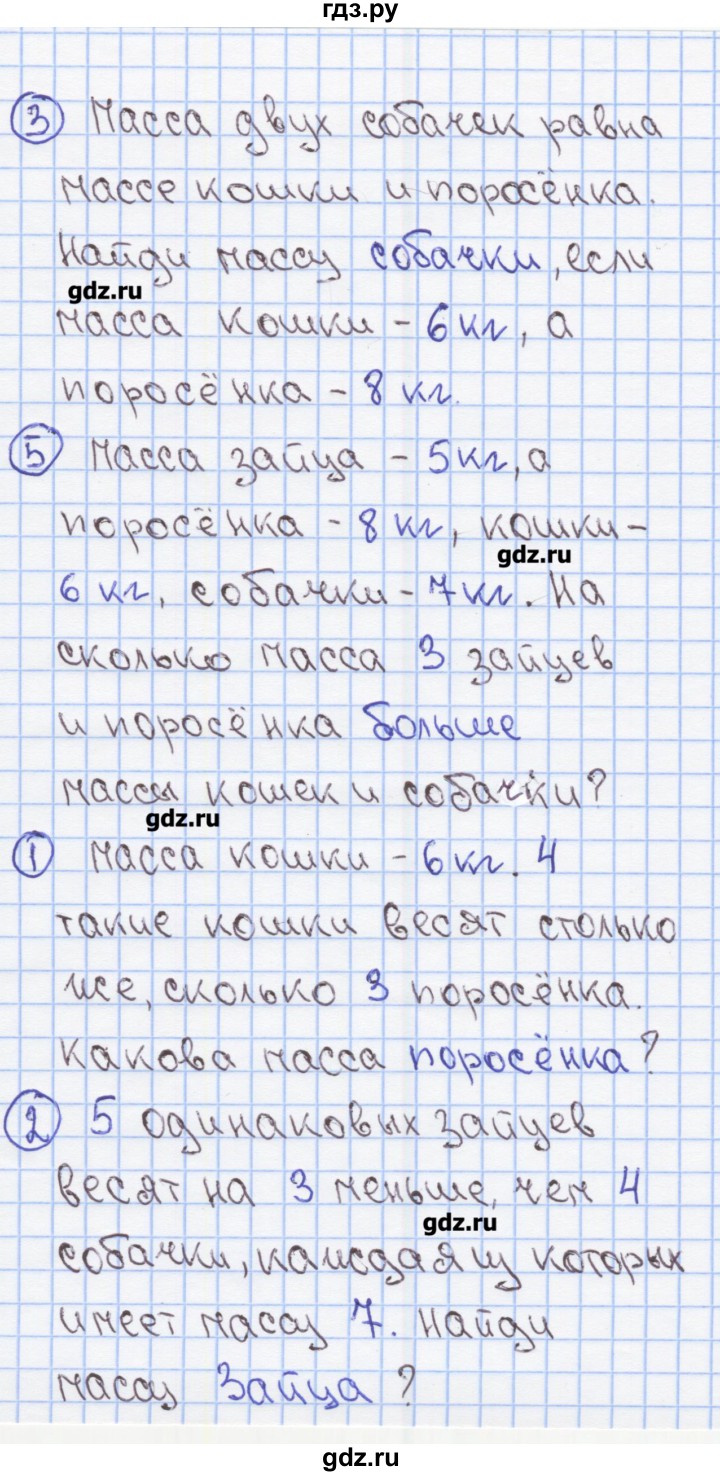 гдз.ру
3 Масса двух собачек равна
массе кошки и поросёнка.
Найди массу собачки, если
gdz.ru
масса кошки - 6 кг, а
поросёнка - 8 кг.
5 Масса зайца - 5 кг, а
поросёнка - 8 кг, кошки -
gdz.ru
6 кг, собачки - 7 кг. На
сколько масса 3 зайцев
и поросёнка больше
массы кошек и собачки?
gdz.ru
1 Масса кошки - 6 кг. 4
такие кошки весят столько
же, сколько 3 поросёнка.
Какова масса поросёнка?
2 5 одинаковых зайцев
весят на 3 меньше, чем 4
gdz.ru
собачки, каждая из которых
имеет массу 7. Найди
массу Зайца?
gdz.ru